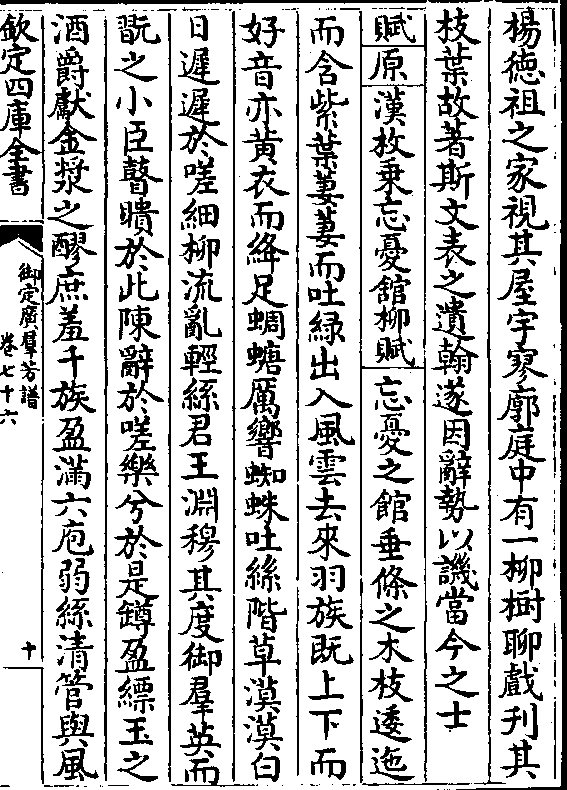 楊徳祖之家視其屋宇寥廓庭中有一柳樹聊戲刋其
枝葉故著斯文表之遺翰遂因辭勢以譏當今之士
賦原漢枚乗忘憂舘柳賦 忘憂之館垂條之木枝逶迤
而含紫葉萋萋而吐緑出入風雲去來羽族既上下而
好音亦黄衣而絳足蜩螗厲響蜘蛛吐絲階草漠漠白
日遲遲於嗟細柳流亂輕絲君王淵穆其度御羣英而
翫之小臣瞽聵於此陳辭於嗟樂兮於是罇盈縹玉之
酒爵獻金漿之醪庶羞千族盈滿六庖弱絲清管與風
欽定四庫全書
御定廣羣芳譜
卷七十六
十